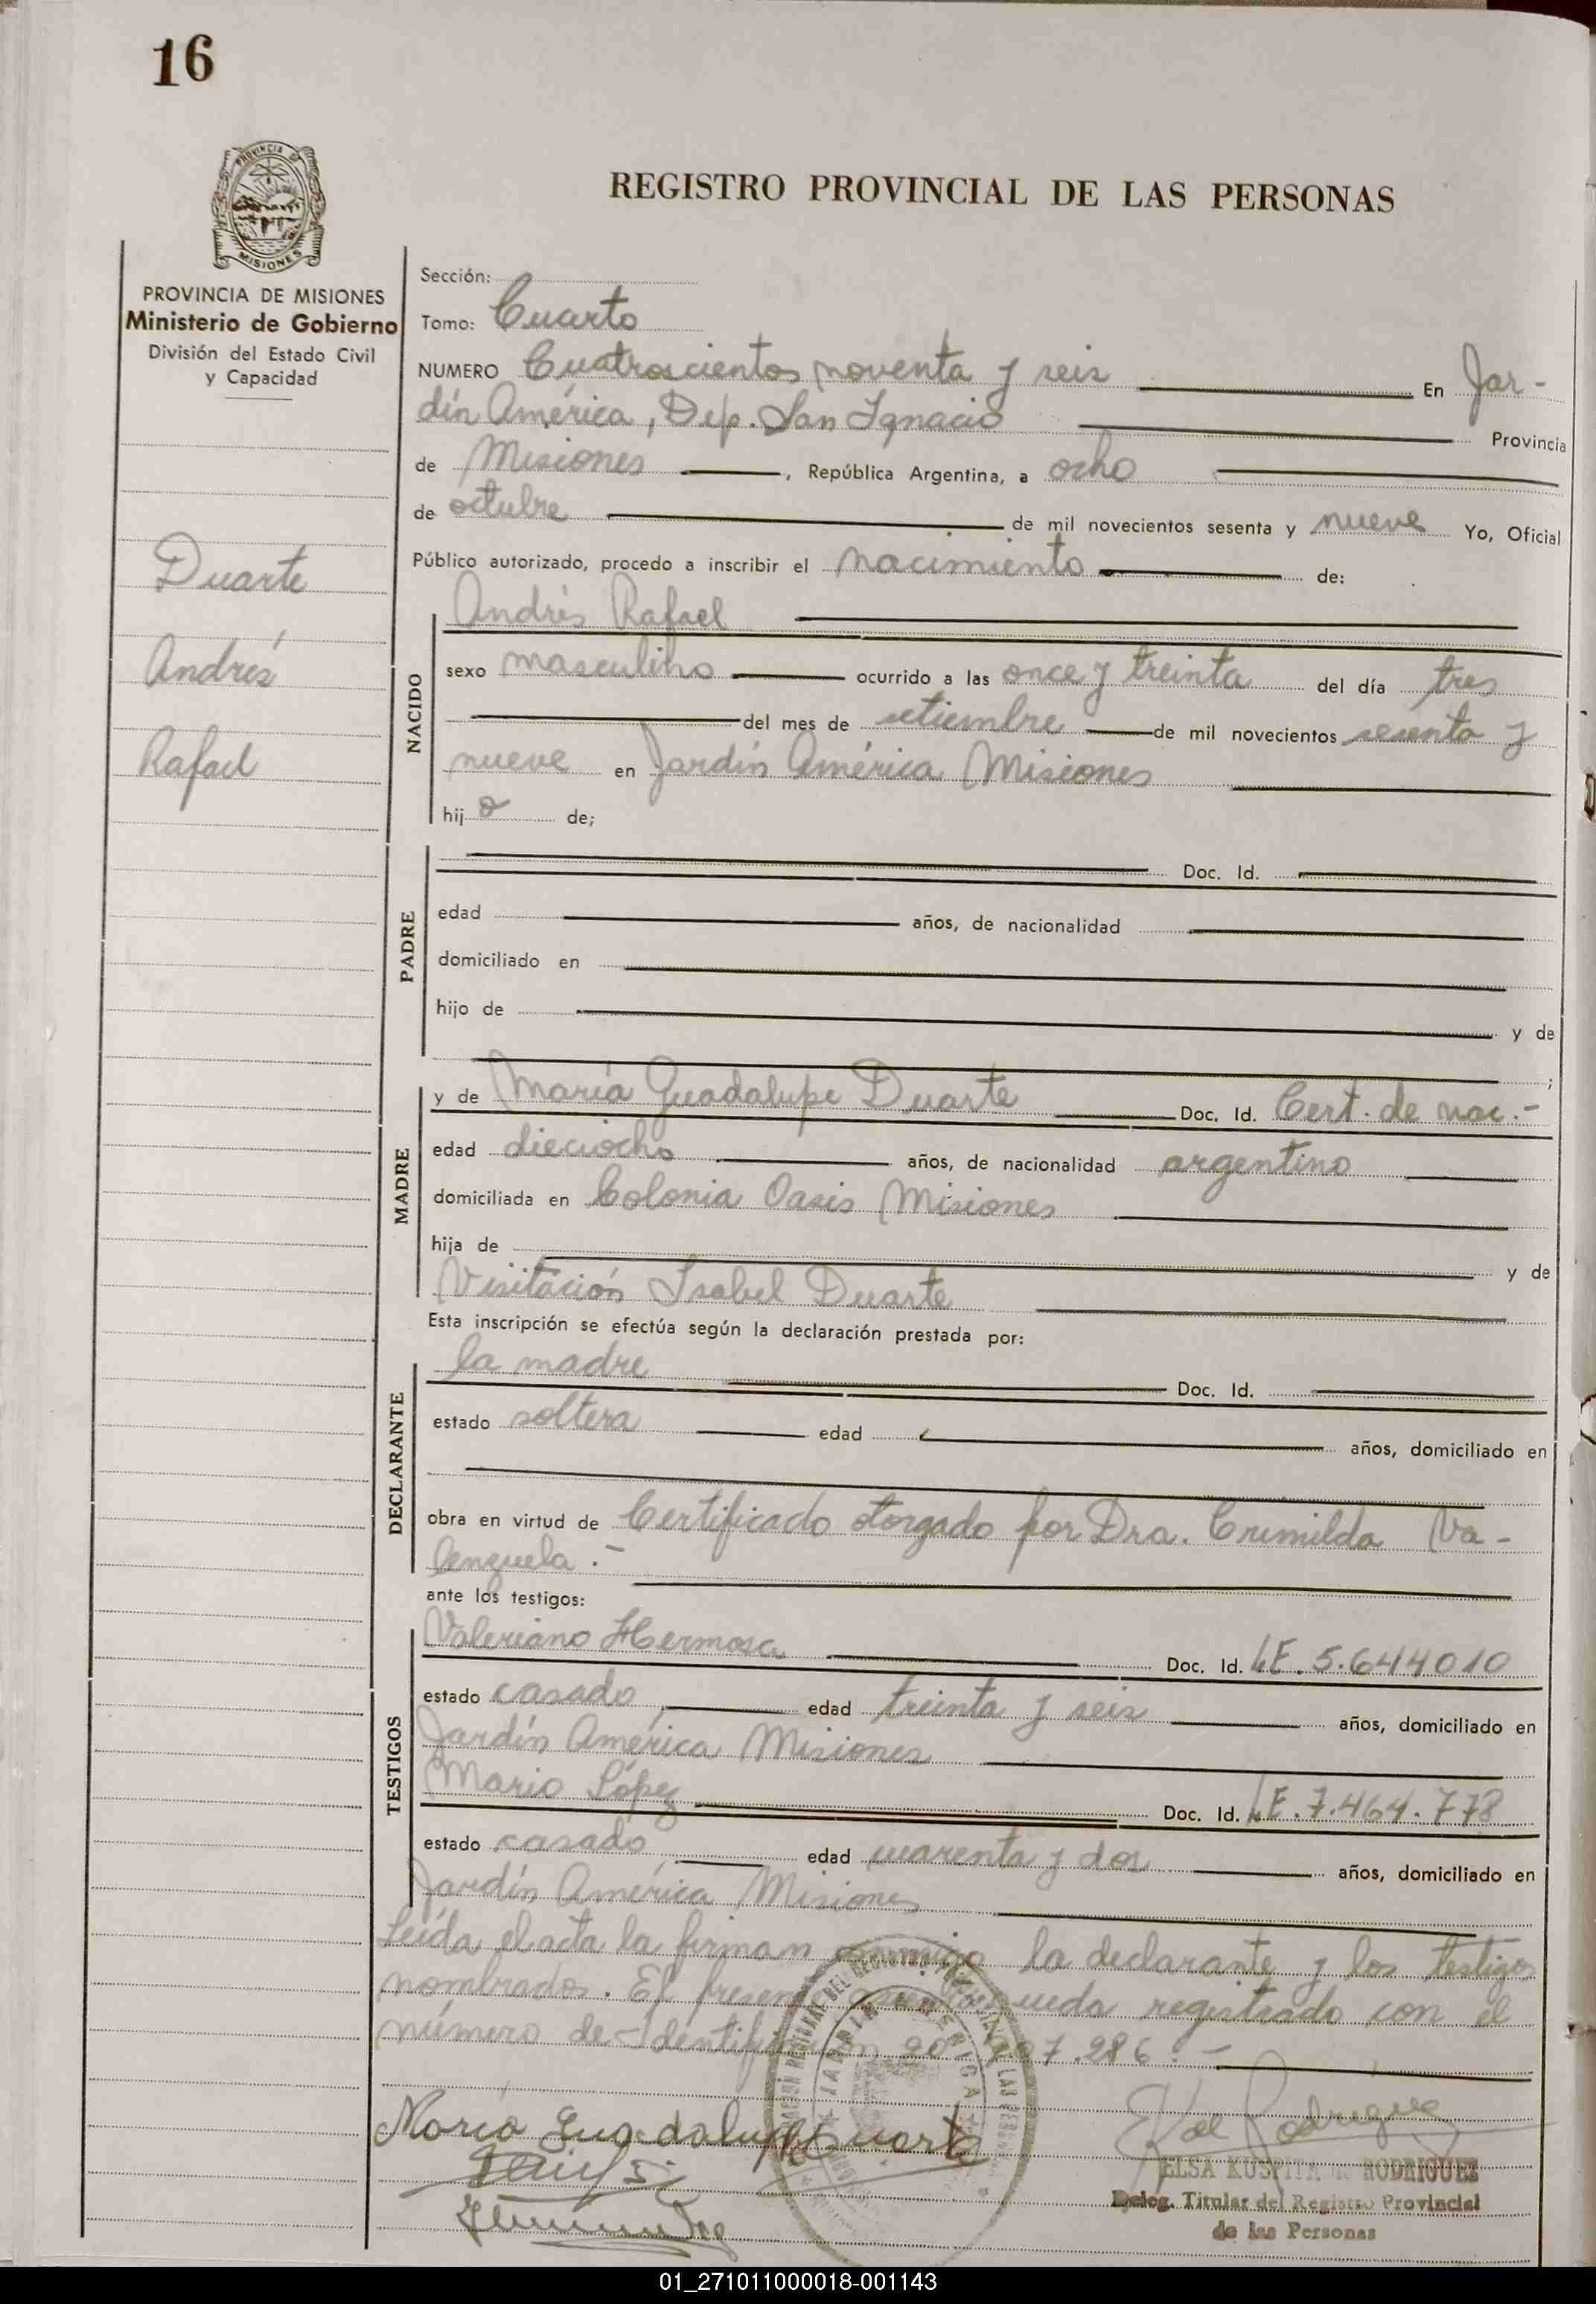 16
PROVINCIA DE
MISIONES
REGISTRO PROVINCIAL DE LAS PERSONAS
PROVINCIA DE MISIONES
Ministerio de Gobierno
División del Estado Civil
y Capacidad
Duarte
Andrés
Rafael
Sección:
Tomo: Cuarto
NUMERO Cuatroscientos noventa y seis En Jar-
dín América, Dep. San Ignacio Provincia
de Misiones, República Argentina, a ocho
de octubre de mil novecientos sesenta y nueve Yo, Oficial
Público autorizado, procedo a inscribir el nacimiento de:
NACIDO
Andrés Rafael
sexo masculino ocurrido a las once y treinta del día tres
del mes de setiembre de mil novecientos sesenta y
nueve en Jardín América Misiones
hijo de;
PADRE
Doc. Id.
edad años, de nacionalidad
domiciliado en
hijo de y de
;
MADRE
y de María Guadalupe Duarte Doc. Id. Cert. de nac.-
edad dieciocho años, de nacionalidad argentino
domiciliada en Colonia Oasis Misiones
hija de y de
Visitación Isabel Duarte
Esta inscripción se efectúa según la declaración prestada por:
DECLARANTE
la madre Doc. Id.
estado soltera edad años, domiciliado en
obra en virtud de Certificado otorgado por Dra. Crimilda Va-
lenzuela.-
ante los testigos:
TESTIGOS
Valeriano Hermosa Doc. Id. LE. 5.644010
estado casado edad treinta y seis años, domiciliado en
Jardín América Misiones
Mario López Doc. Id. LE. 7.464.778
estado casado edad cuarenta y dos años, domiciliado en
Jardín América Misiones
Leída el acta la firman conmigo la declarante y los testigos
nombrados. El queda registrado con el
número de 7.286.-
María Guadalupe Duarte
ELSA KUSPITA RODRIGUEZ
Deleg. Titular del Registro Provincial
de las Personas
JARDIN AMERICA
01_271011000018-001143